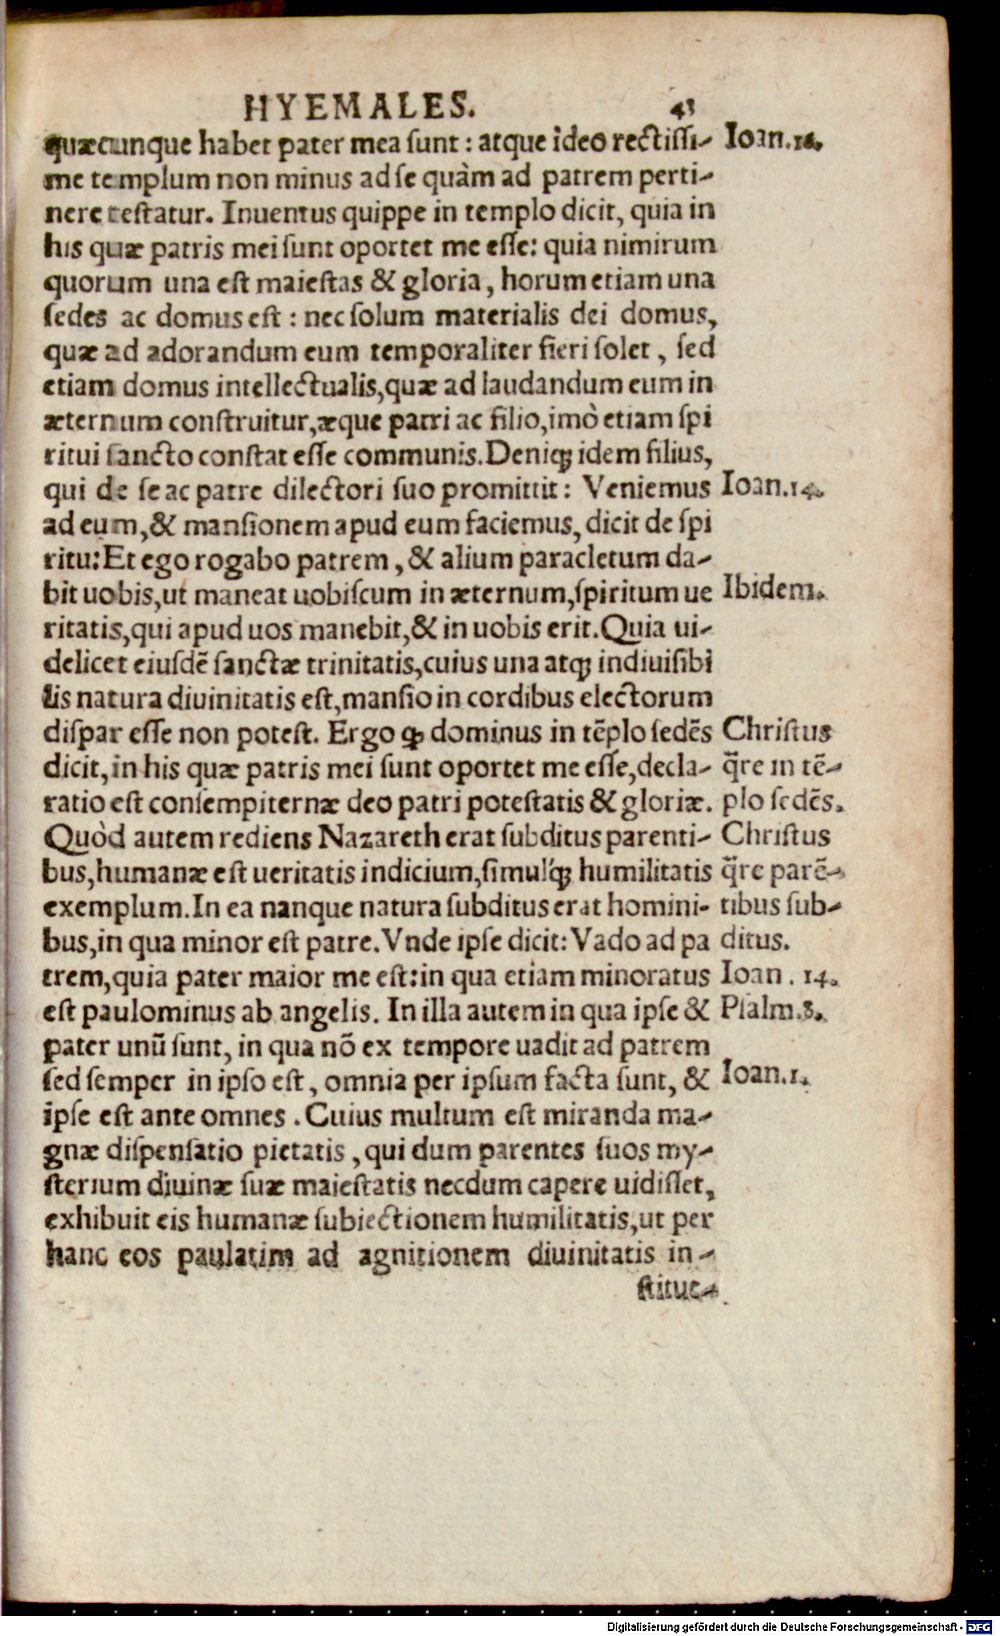 HYEMALES. 43
quæcunque habet pater mea sunt: atque ideo rectissi- Ioan.16.
me templum non minus ad se quàm ad patrem perti-
nere testatur. Inuentus quippe in templo dicit, quia in
his quæ patris mei sunt oportet me esse: quia nimirum
quorum una est maiestas & gloria, horum etiam una
sedes ac domus est: nec solum materialis dei domus,
quæ ad adorandum eum temporaliter fieri solet, sed
etiam domus intellectualis, quæ ad laudandum eum in
æternum construitur, æque patri ac filio, imò etiam spi
ritui sancto constat esse communis. Deniqꝫ idem filius,
qui de se ac patre dilectori suo promittit: Veniemus Ioan.14.
ad eum, & mansionem apud eum faciemus, dicit de spi
ritu: Et ego rogabo patrem, & alium paracletum da-
bit uobis, ut maneat uobiscum in æternum, spiritum ue Ibidem.
ritatis, qui apud uos manebit, & in uobis erit. Quia ui-
delicet eiusdē sanctæ trinitatis, cuius una atqꝫ indiuisibi
lis natura diuinitatis est, mansio in cordibus electorum
dispar esse non potest. Ergo ꝙ dominus in tēplo sedēs Christus
dicit, in his quæ patris mei sunt oportet me esse, decla- q̄re in tē-
ratio est consempiternæ deo patri potestatis & gloriæ. plo sedēs.
Quòd autem rediens Nazareth erat subditus parenti- Christus
bus, humanæ est ueritatis indicium, simulqꝫ́ humilitatis q̄re parē-
exemplum. In ea nanque natura subditus erat homini- tibus sub-
bus, in qua minor est patre. Vnde ipse dicit: Vado ad pa ditus.
trem, quia pater maior me est: in qua etiam minoratus Ioan. 14.
est paulominus ab angelis. In illa autem in qua ipse & Psalm.8.
pater unū sunt, in qua nō ex tempore uadit ad patrem
sed semper in ipso est, omnia per ipsum facta sunt, & Ioan.1.
ipse est ante omnes. Cuius multum est miranda ma-
gnæ dispensatio pietatis, qui dum parentes suos my-
sterium diuinæ suæ maiestatis necdum capere uidisset,
exhibuit eis humanæ subiectionem humilitatis, ut per
hanc eos paulatim ad agnitionem diuinitatis in-
stitue-
Digitalisierung gefördert durch die Deutsche Forschungsgemeinschaft - DFG